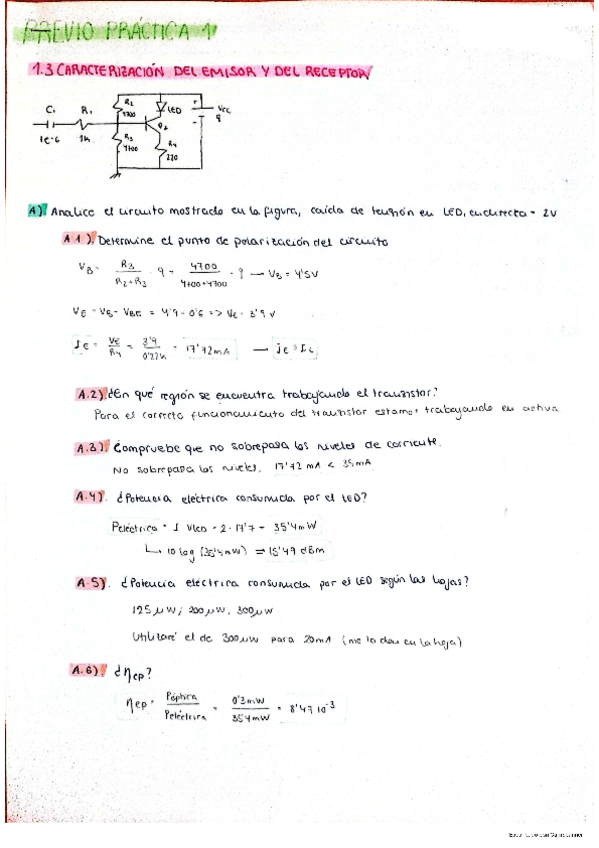 PREVIO PRÁCTICA 1
1.3 CARACTERIZACIÓN DEL EMISOR Y DEL RECEPTOR
C1 R1 R2 4700 LED Vcc 9
1e-6 1k R3 4700 Q2 R4 220
A) Analice el circuito mostrado en la figura, caída de tensión en LED, en directa = 2V
A.1). Determine el punto de polarización del circuito
VB = R3 / R2+R3 · 9 = 4700 / 4700+4700 · 9 — VB = 4'5V
VE = VB - VBE = 4'9 - 0'6 => VE = 3'9 V
IE = VE / R4 = 3'9 / 0'22k = 17'72mA — IE ≈ IC
A.2) ¿En qué región se encuentra trabajando el transistor?
Para el correcto funcionamiento del transistor estamos trabajando en activa
A.3). Compruebe que no sobrepasa los niveles de corriente.
No sobrepasa los niveles. 17'72 mA < 35mA
A.4). ¿Potencia eléctrica consumida por el LED?
Peléctrica = I VLED = 2 · 17'7 = 35'4mW
↳ 10 log (35'4mW) = 15'49 dBm
A.5). ¿Potencia eléctrica consumida por el LED según las hojas?
125 μW; 200 μW, 300μW
Utilizaré el de 300μW para 20mA (me lo dan en la hoja)
A.6) ¿ηep?
ηep = Póptica / Peléctrica = 0'3mW / 35'4mW = 8'47 10⁻³